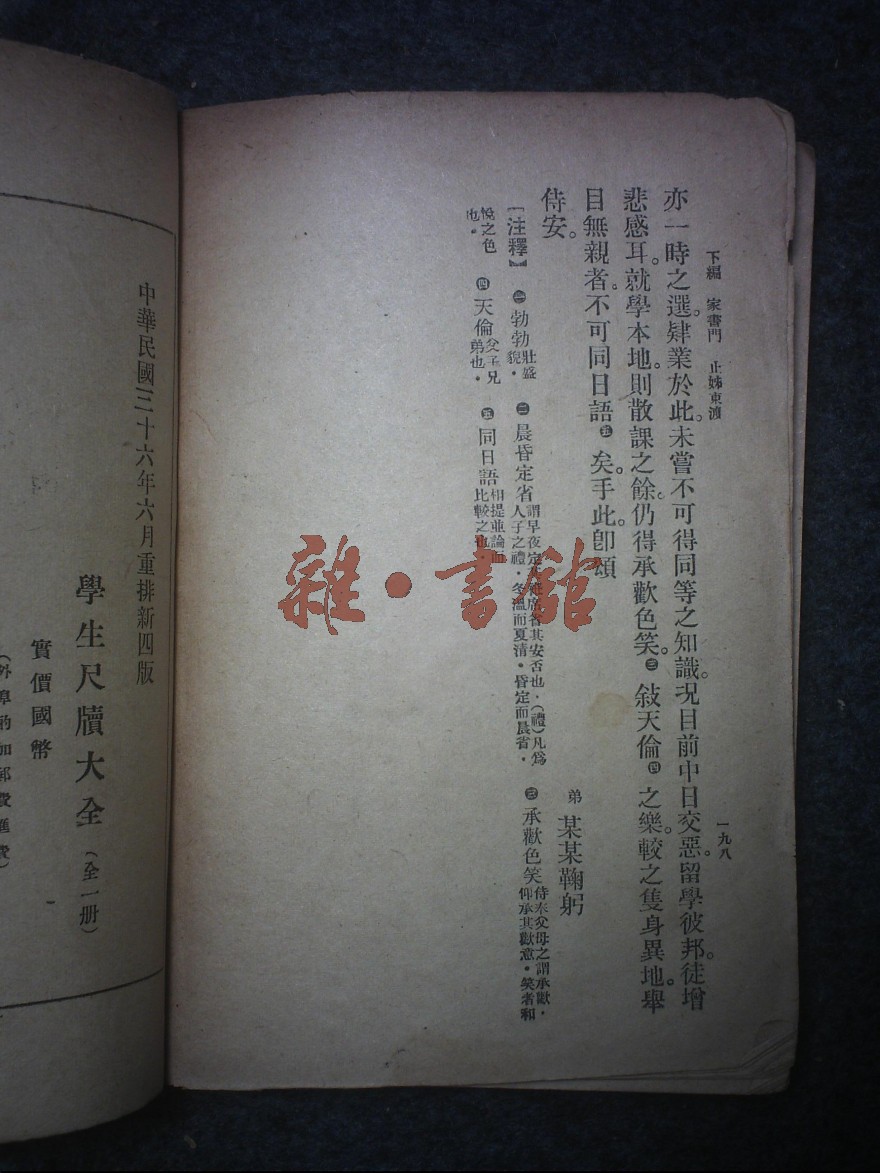 下編 家書門 止姊東渡
一九八
亦一時之選。肄業於此。未嘗不可得同等之知識。況目前中日交惡。留學彼邦。徒增
悲感耳。就學本地。則散課之餘。仍得承歡色笑。㊂敍天倫㊃之樂。較之隻身異地。舉
目無親者。不可同日語㊄矣。手此。卽頌
侍安。
弟 某某鞠躬
【注釋】㊀勃勃壯盛貌。㊁晨昏定省謂早夜定省其安否也。(禮)凡爲人子之禮。冬溫而夏凊。昏定而晨省。㊂承歡色笑侍奉父母之謂承歡。仰承其歡意。笑者和
悅之色也。㊃天倫父子兄弟也。㊄同日語相提並論而比較之也。
雜·書館
中華民國三十六年六月重排新四版
學生尺牘大全(全一册)
實價國幣
(外埠酌加郵費匯費)